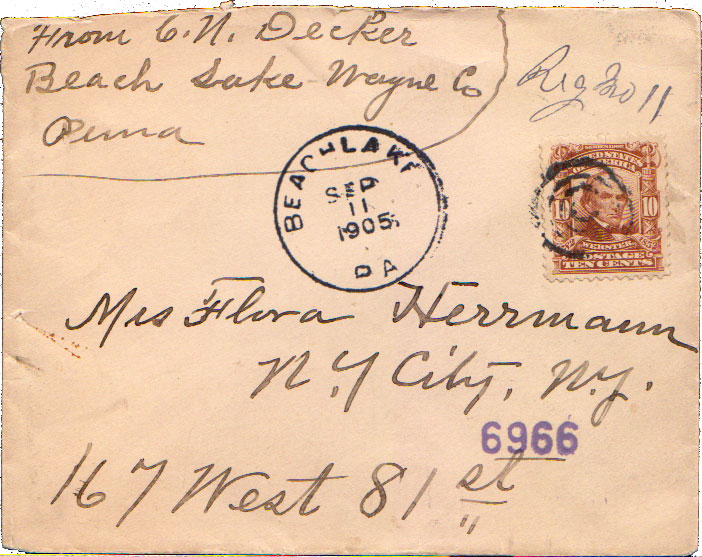 From C. N. Decker
Beach Lake Wayne Co
Penna
Reg No 11
BEACH LAKE
SEP
11
1905
PA
UNITED STATES
OF AMERICA
10 10
WEBSTER
POSTAGE
TEN CENTS
Mrs Flora Herrmann
N.Y City, N.Y.
6966
167 West 81 st